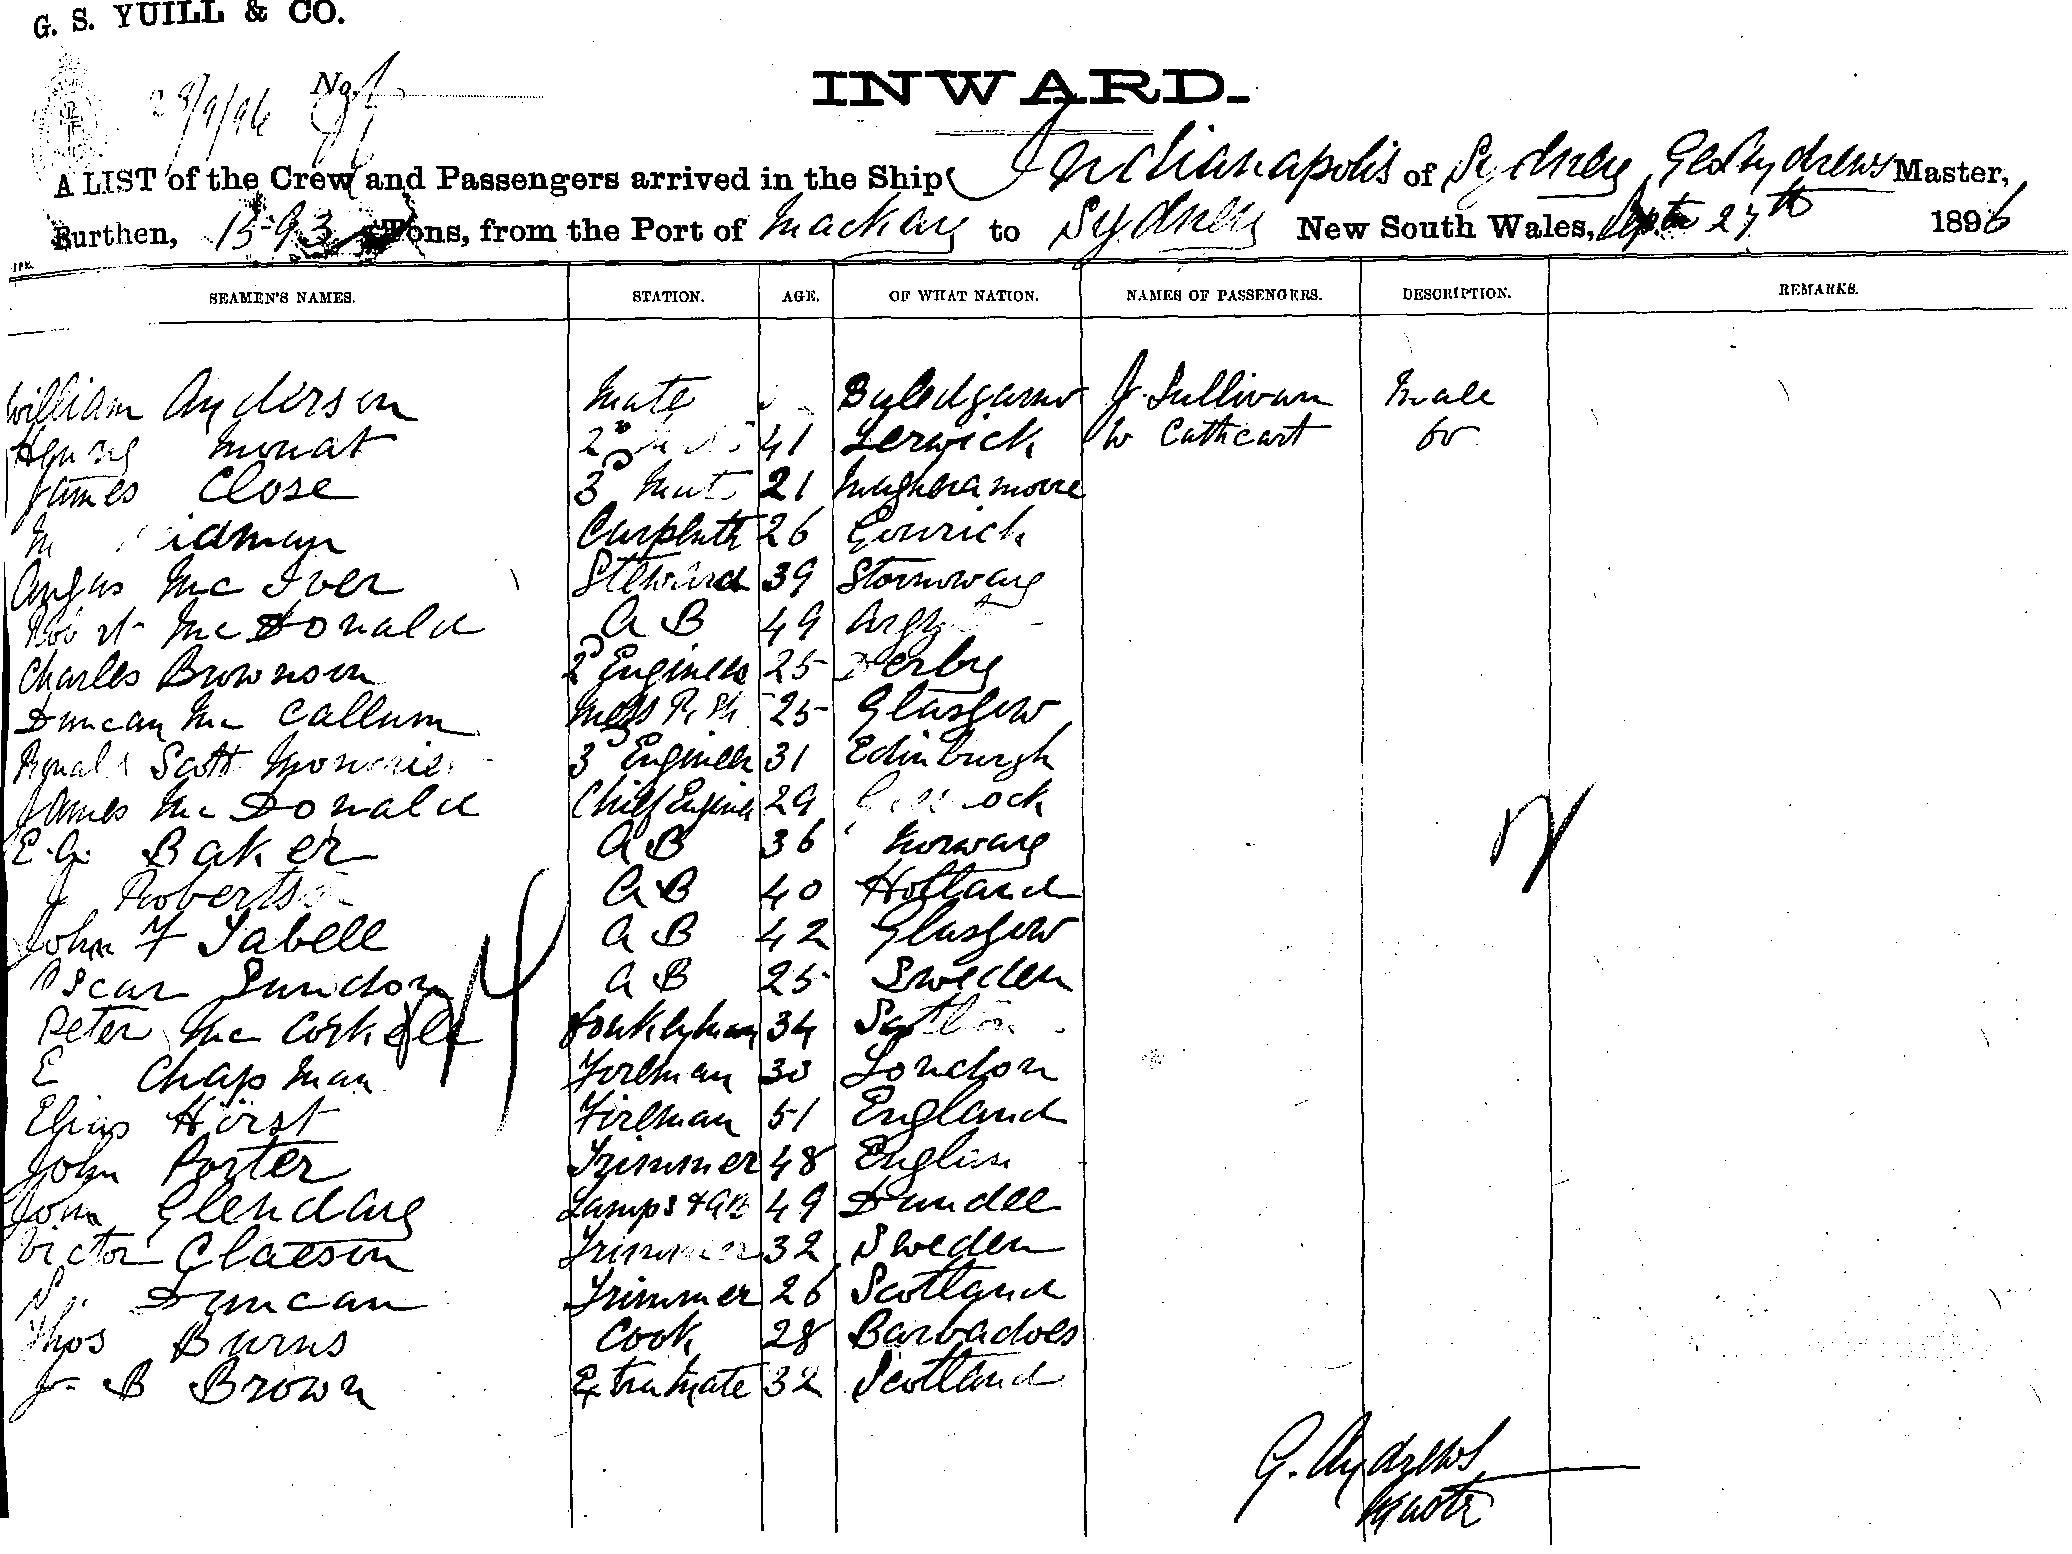 G. S. YUILL & CO.
28/9/96 No.
INWARD.
A LIST of the Crew and Passengers arrived in the Ship Indianapolis of Sydney, Geo Andrews Master,
Burthen, 1593 Tons, from the Port of Mackay to Sydney New South Wales, Septr 27th 1896
SEAMEN'S NAMES. STATION. AGE. OF WHAT NATION. NAMES OF PASSENGERS. DESCRIPTION. REMARKS.
William Anderson Mate J. Sullivan Male
Henry Mouat 2d 41 Lerwick W Cathcart Do
James Close 3d Mate 21 Magheramorne
M Carpentr 26
Angus McIver Steward 39 Stornoway
Robt McDonald A B 49
Charles Brownson 2d Engineer 25 Derby
Duncan McCallum Mess 25 Glasgow
Scott 3d Engineer 31 Edinburgh
James McDonald Chief Engineer 29
E. A. Baker A B 36 Norway
J A B 40 Holland
John F Tabell A B 42 Glasgow
Oscar Sundon A B 25 Sweden
Peter McCorkell Donkeyman 34
E Chapman Fireman 30 London
Elias Hörst Fireman 51 England
John Porter Trimmer 48 English
John Glenday Lamps & AB 49 Dundee
Victor Claeson Trimmer 32 Sweden
Duncan Trimmer 26 Scotland
Thos Burns Cook 28 Barbadoes
J. B Brown Extra Mate 32 Scotland
G. Andrews
Master